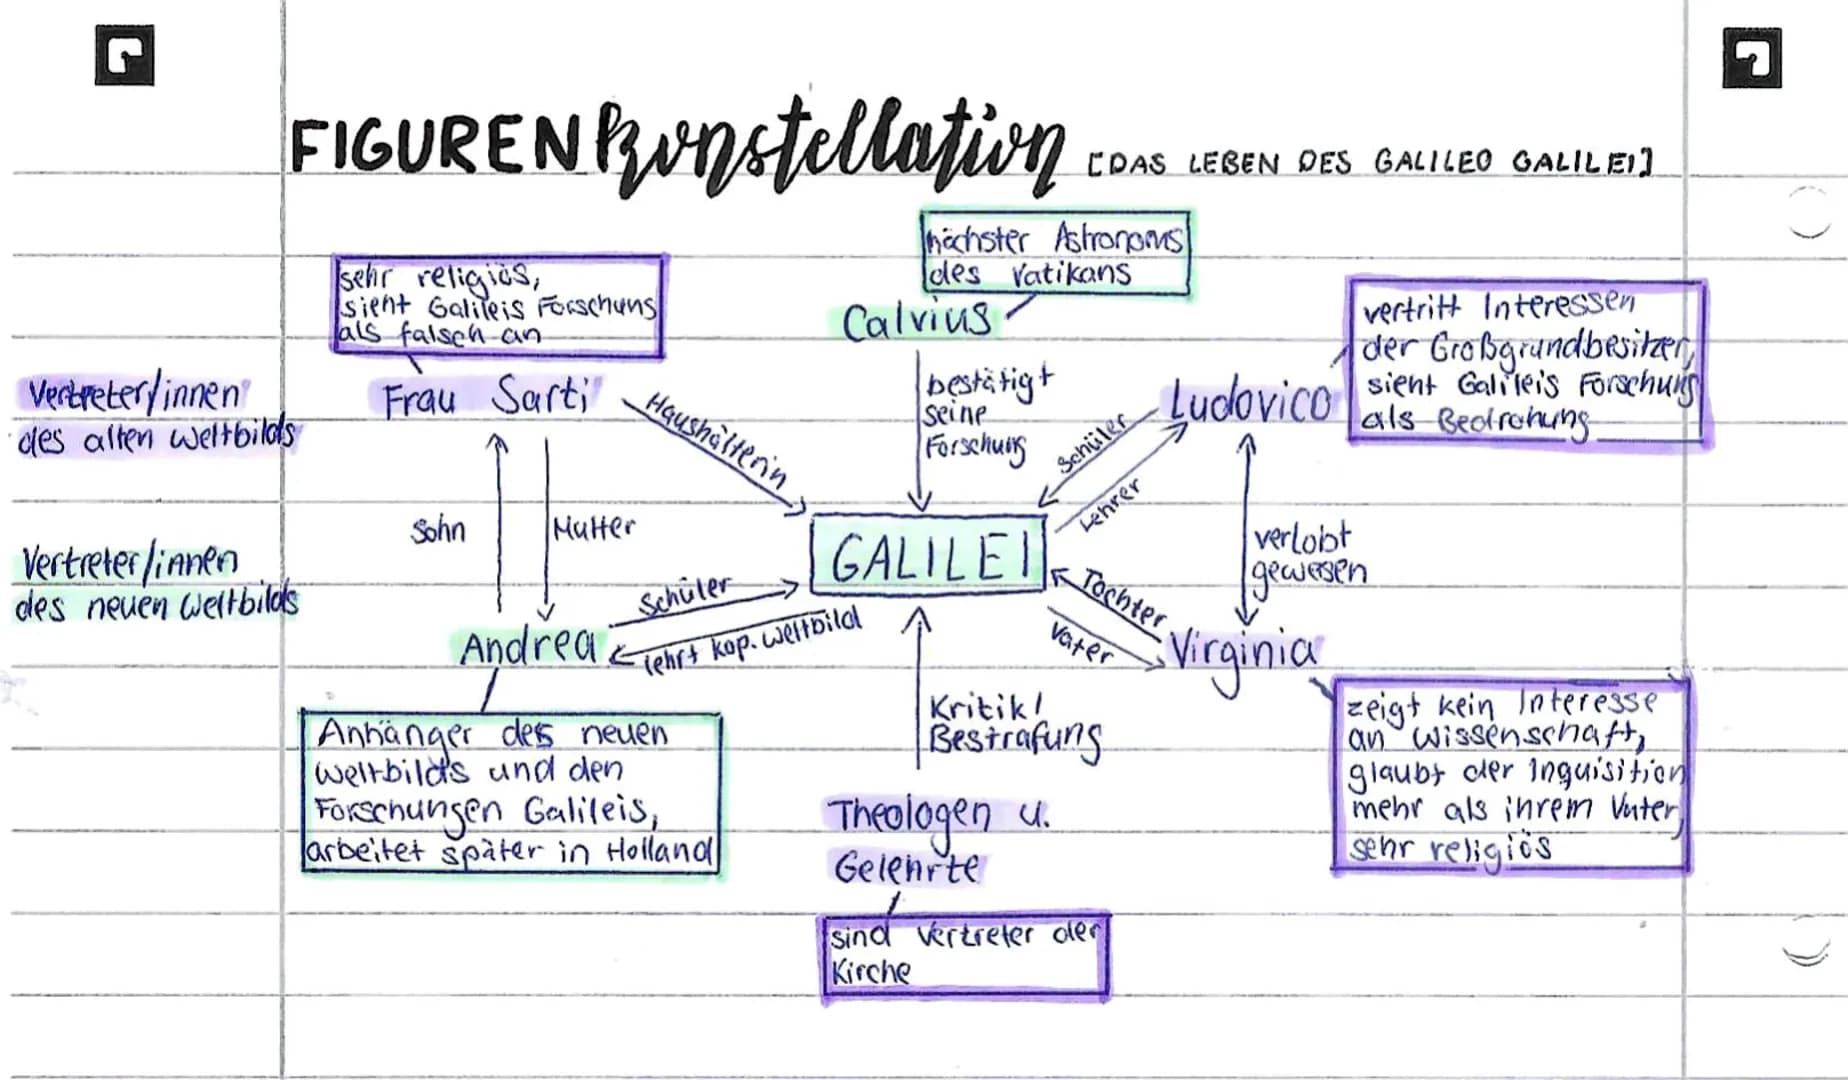 FIGURENkonstellation [DAS LEBEN DES GALILEO GALILEI]
höchster Astronoms
des Vatikans
Calvius
sehr religiös,
sieht Galileis Forschung
als falsch an
Frau Sarti
vertritt Interessen
der Großgrundbesitzer,
sieht Galileis Forschung
als Bedrohung
Ludovico
Vertreter/innen
des alten Weltbilds
Vertreter/innen
des neuen Weltbilds
Haushälterin
bestätigt
seine
Forschung
Schüler
Lehrer
Sohn
Mutter
verlobt
gewesen
GALILEI
Schüler
lehrt kop. Weltbild
Tochter
Vater
Andrea
Virginia
Anhänger des neuen
Weltbilds und den
Forschungen Galileis,
arbeitet später in Holland
Kritik/
Bestrafung
Theologen u.
Gelehrte
sind Vertreter der
Kirche
zeigt kein Interesse
an Wissenschaft,
glaubt der Inquisition
mehr als ihrem Vater,
sehr religiös